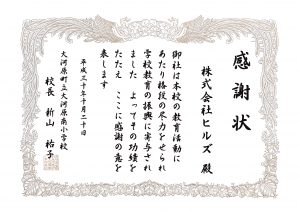 感謝状
株式会社ヒルズ 殿
御社は本校の教育活動に
あたり格段の尽力をせられ
学校教育の振興に寄与され
ました よってその功績を
たたえ ここに感謝の意を
表します
平成三十年十月二十日
大河原町立大河原南小学校
校長 新山 裕子